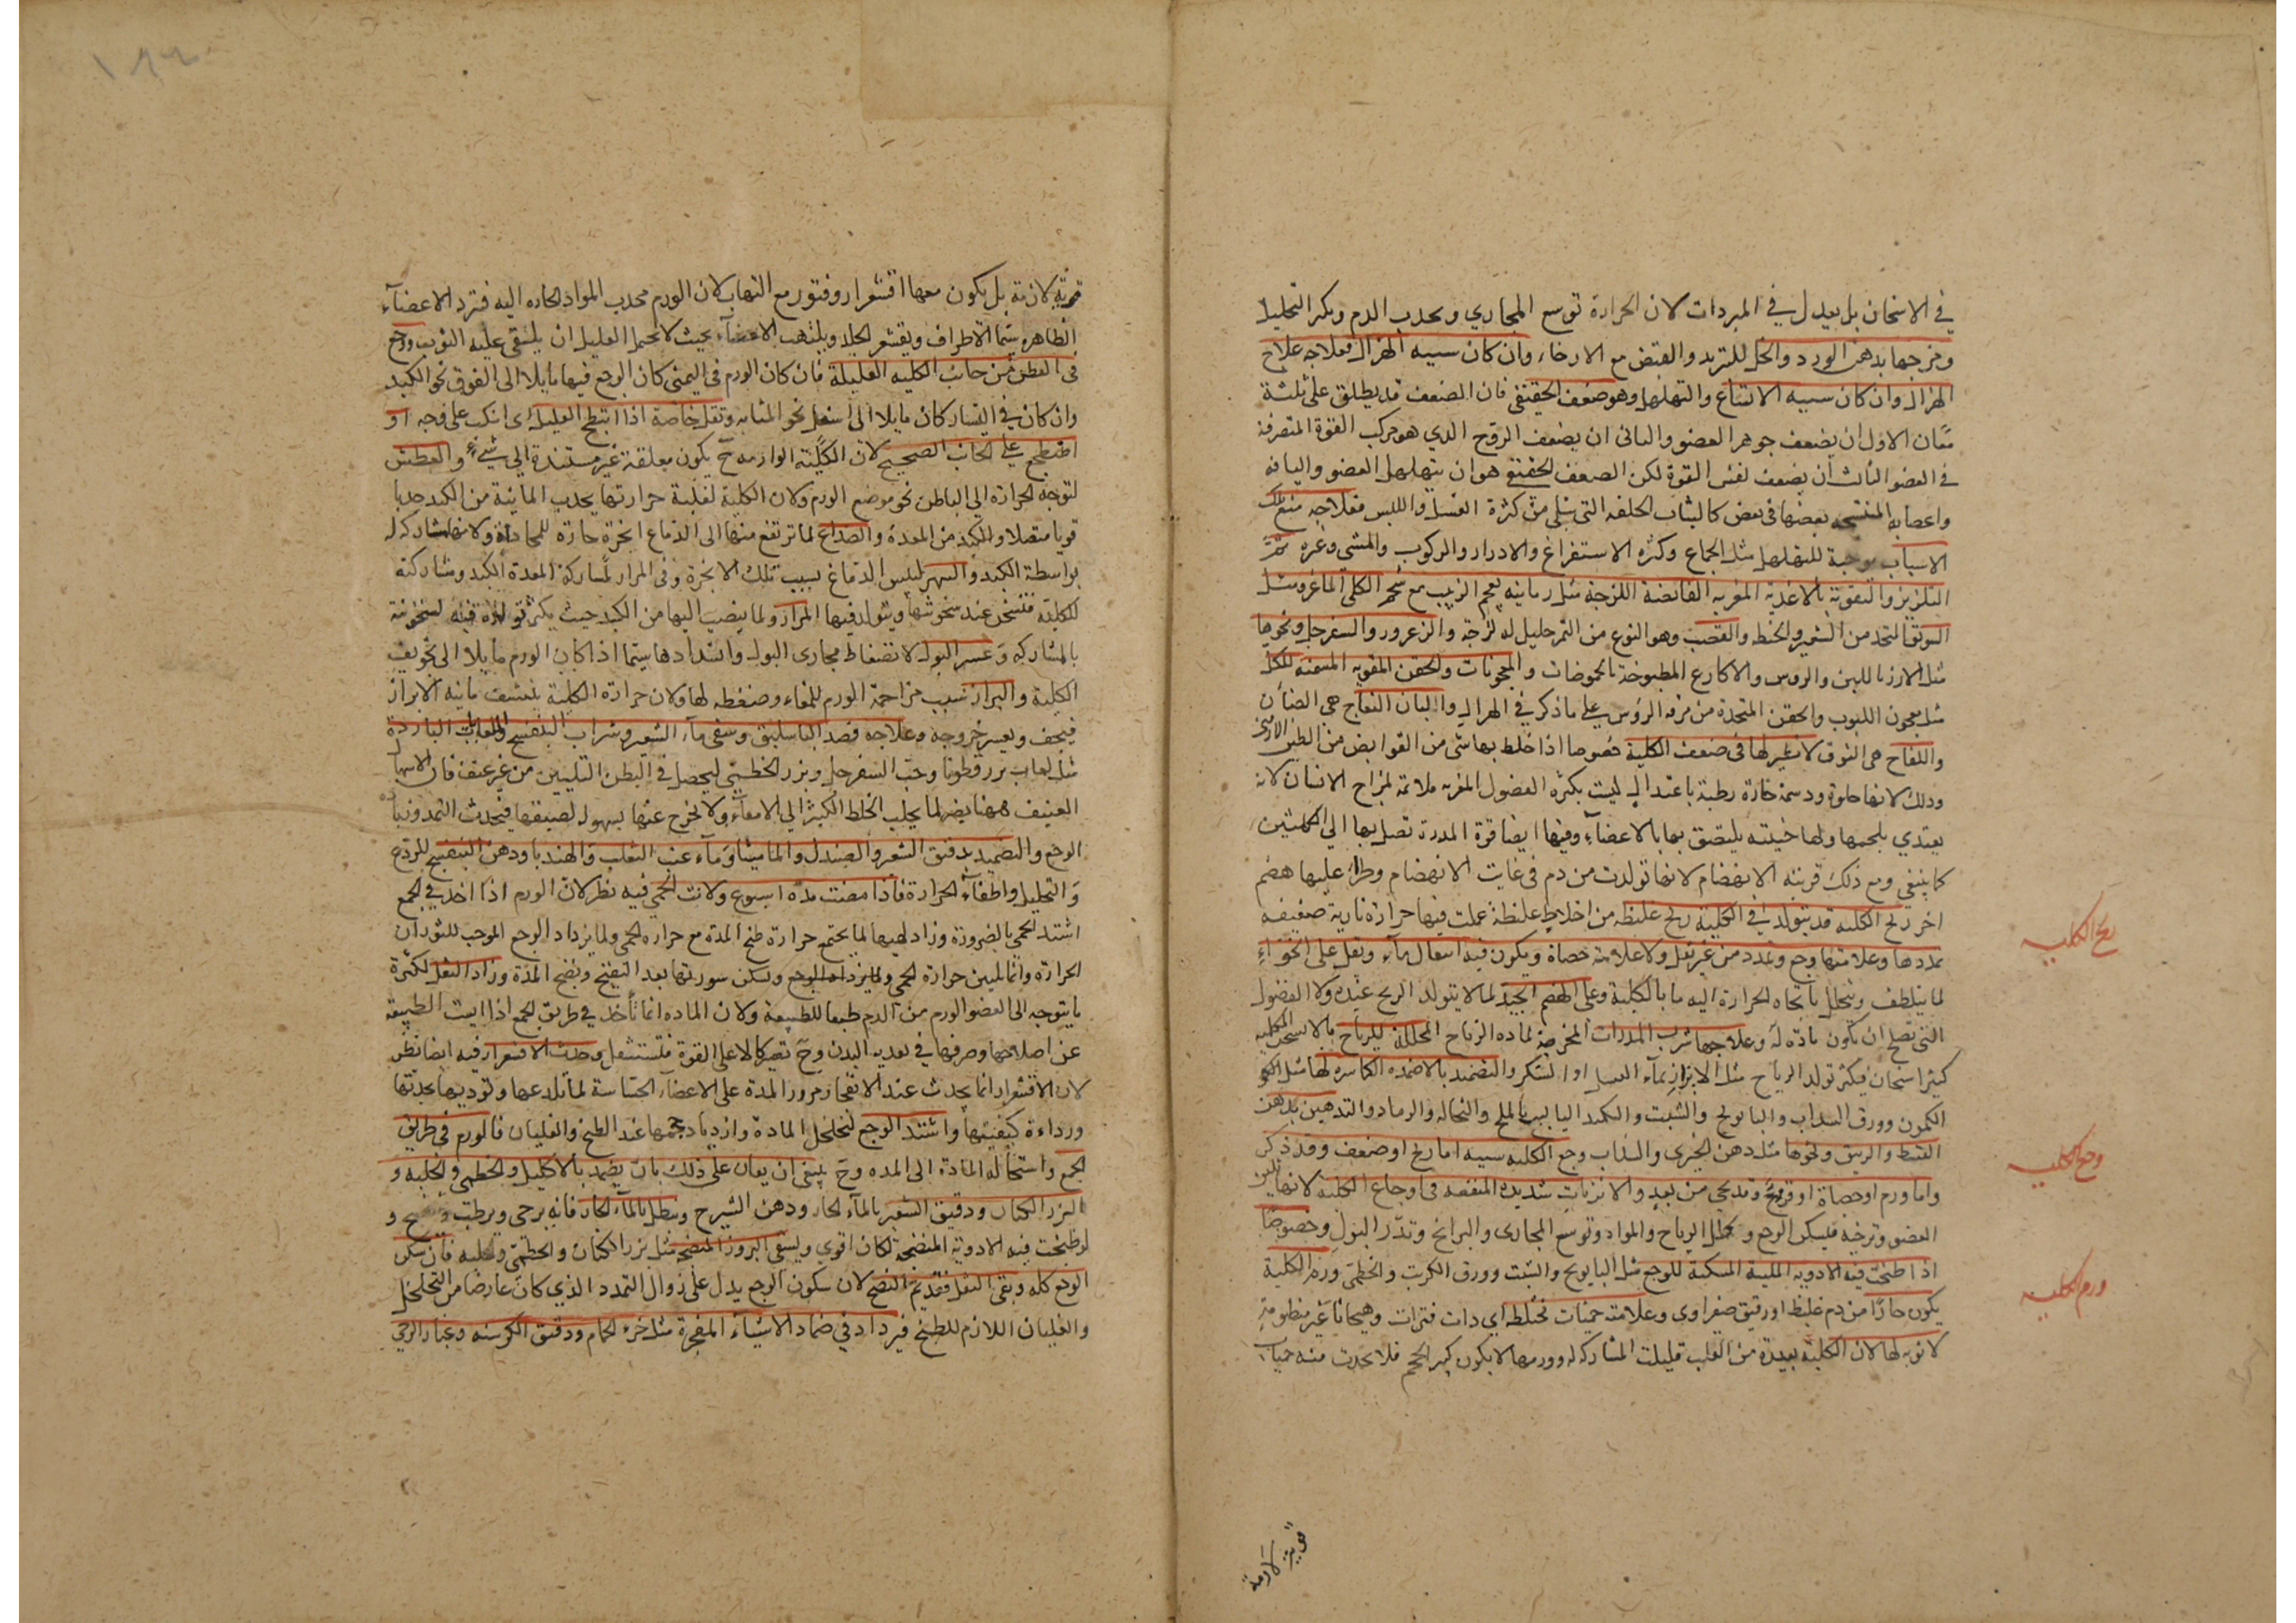 في الاسخان بل يعدل في المبردات لان الحرارة توسع المجاري وتجذب الدم وتكثر التحليل
ومزجها بدهن الورد والخل للتبريد والقبض مع الارخاء وان كان سببه الهزال فعلاجه علاج
الهزال وان كان سببه الاتساع والتهلهل وهو ضعف الحقيقي فان الضعف قد يطلق على ثلثة
معان الاول ان يضعف جوهر العضو والثانى ان يضعف الروح الذي هو مركب القوة المتصرفة
في العضو الثالث ان يضعف نفس القوة لكن الضعف الحقيقي هو ان يتهلهل العضو واليافه
واعصابه المنتسجه بعضها فى بعض كالثياب الخلقه التى تبلى من كثرة الغسل واللبس فعلاجه منع تلك
الاسباب موجبة للتهلهل مثل الجماع وكثره الاستفراغ والادرار والركوب والمشى وغيره ثمّ
التلزيز والتقوية بالاغذية المغريه القابضة اللزجة مثل رمانيه بعجم الزبيب مع شحم الكلى الماعز ومثل
السويق المتخذ من الشعير والحنطه والقصب وهو النوع من التمر حليل له لزجة والزعرور والسفرجل ونحوها
مثل الارز باللبن والروس والاكارع المطبوخة بالحموضات والمعجونات والحقن المقويه المسمنة للكلى
مثل معجون اللبوب والحقن المتخذة من مرقه الرؤس على ما ذكر في الهزال والبان النعاج هى الضأن
واللقاح هى النوق لا نظير لها فى ضعف الكلية خصوصا اذا خلط بها شى من القوابض من الطين الارمنى
وذلك لانها حلوة ودسمة حارة رطبة باعتدال ليست بكثيره الفضول المغريه ملائمة لمزاج الانسان لانه
يغتذي بلحمها ولها خيثته يلتصق بها بالاعضاء وفيها ايضا قوة المدرة تصل بها الى الكليتين
كما ينبغى ومع ذلك قريبه الانهضام لانها تولدت من دم فى غايت الانهضام وطرأ عليها هضم
اخر ريح الكليه قد يتولد في الكلية ريح غليظه من اخلاط غليظة عملت فيها حرارة نارية ضعيفه
تمددها وعلامتها وجع وتمدد من غير ثقل ولا علامة حصاة ويكون فيه انتقال ماء وتقل على الخواء
لما يتلطف ويتحلل باتجاه الحرارة اليه ما بالكلية وعلى الهضم الجيد لما لا يتولد الريح عنده ولا الفضول
التى تصلح ان يكون مادة له وعلاجها شرب المدرات المخرجة لماده الرياح المحللة للرياح بالاسخان المحلليه
كثيرا سخان فيكثر تولد الرياح مثل الابزار بماء العسل او السكر والتضميد بالاضمده الكاسره لها مثل النحو
الكمون وورق السداب والبابونج والشبت والتكميد اليابس بالملح والنخاله والرماد والتدهين بدهن
القسط والزيبق ونحوها مثل دهن الخيرى والسذاب وجع الكليه سببه اما ريح او ضعف وقد ذكر
واما ورم او حصاة او قروح وقد يجى من بعد والابزنات شديدة المنفعه فى اوجاع الكليه لانها تلين
العضو وترخيه فيسكن الوجع وتحلل الرياح والمواد وتوسع المجارى والبرانخ وتدر البول وخصوصا
اذا طبخت فيه الادويه الملينة المسكنة للوجع مثل البابونج والشبت وورق الكرنب والخطمى ورم الكلية
يكون حارًا من دم غليظ او رقيق صفراوى وعلامته حميات مختلطه اي ذات فترات وهيجانا غير منظومة
لا نوبه لها لان الكلية بعيدة من القلب قليلت المشاركه له وورمها لا يكون كبير الحجم فلا يحدث منه حميات
ريح الكليه
وجع الكليه
ورم الكليه
قوية لازمة
قوية لازمة بل يكون معها اقشعرار وفتور مع التهاب لان الورم يجذب المواد الحاره اليه فتبرد الاعضاء
الظاهره سيّما الاطراف ويقشعر الجلد ويلتهب الاعضاء بحيث لا يحتمل العليل ان يلتقى عليه الثوب ووجع
فى القطن من جانب الكليه العليلة فان كان الورم فى اليمنى كان الوجع فيها مايلا الى الفوق نحو الكبد
وان كان في اليسار كان مايلا الى اسفل نحو المثانه وثقل خاصة اذا انبطح العليل اى انكب على وجهه او
اضطجع على الجانب الصحيح لان الكلية الوارمه ح يكون معلقة غير مستندة الى شيء والعطش
لتوجه الحرارة الى الباطن نحو موضع الورم ولان الكلية لغلبة حرارتها يجذب المائية من الكبد جذبا
قويا متصلا والكبد من المعدة والصداع لما ترتفع منها الى الدماغ ابخرة حارة للمحاذاة ولانها مشاركه له
بواسطة الكبد والسهر ليبس الدماغ بسبب تلك الابخرة وقى المرار لمشاركة المعدة الكبد ومشاركته
للكليه فتسخن عند سخونتها ويتولد فيها المرار ولما ينصب اليها من الكبد حيث يكثر تولده فيه لسخونته
بالمشاركه وعسر البول لانضغاط مجارى البول وانسدادها سيما اذا كان الورم مايلا الى تجويف
الكلية والبراز بسبب مزاحمة الورم للمعاء وضغطه لها ولان حرارة الكلية ينشف مائيه الابراز
فيجف ويعسر خروجه وعلاجه فصد الباسليق وسقى ماء الشعير وشراب البنفسج والالعاب الباردة
مثل لعاب بزر قطونا وحب السفرجل وبزر الخطمى ليحصل في البطن التليين من غير عنف فان الاسهال
العنيف ههنا يضر لما يجلب الخلط الكثير الي الامعاء ولا يخرج عنها بسهوله لضيقها فيحدث التمدد ويزيد
الوجع والتضميد بدقيق الشعير والصندل والماميثا وماء عنب الثعلب والهندبا ودهن البنفسج للردع
والتحليل واطفاء الحرارة فاذا مضت مدة اسبوع ولانت الحمى فيه نظر لان الورم اذا اخذ في الجمع
اشتد الحمى بالضرورة وزاد لهيبها لما يجتمع حرارة طبخ المدة مع حراره الحمى ولما يزداد الوجع الموجب للثوران
الحرارة وانما يلين حرارة الحمى ولما يزداد الوجع ويسكن سورتها بعد التفتح ونضج المدة وزاد الثقل لكثرة
ما يتوجه الى العضو الورم من الدم طبعا للطبيعة ولان الماده انما تأخذ في طريق الجمع اذا ايست الطبيعة
عن اصلاحها وصرفها في تغذيه البدن وح تصير كلا على القوة فتستثقل وحدث الاقشعرار فيه ايضا نظر
لان الاقشعرار انما يحدث عند الانفجار ومرور المدة على الاعضاء الحساسة لما تلدعها وتوذيها بحدتها
ورداءة كيفيتها واشتد الوجع لتخلخل المادة وازدياد حجمها عند الطبخ والغليان فالورم فى طريق
الجمع واستحالة المادة الى المده وح ينبغى ان يعان على ذلك بان يضمد بالاكليل والخطمى والحلبه و
البزر الكتان ودقيق الشعير بالماء الحار ودهن الشيرج وينطل بالماء الحار فانه يرخى ويرطب وينضج و
لو طبخت فيه الادوية المنضجة لكان اقوى ويسقى البزور المنضجه مثل بزر الكتان والخطمى والحلبه فان سكن
الوجع كله وبقى الثقل فقد تم النضج لان سكون الوجع يدل على زوال التمدد الذي كان عارضا من التخلخل
والغليان اللازم للطبخ فيزداد في ضماد الاشياء المفجرة مثل خرء الحمام ودقيق الكرسنه وغبار الرحى
١٨٢